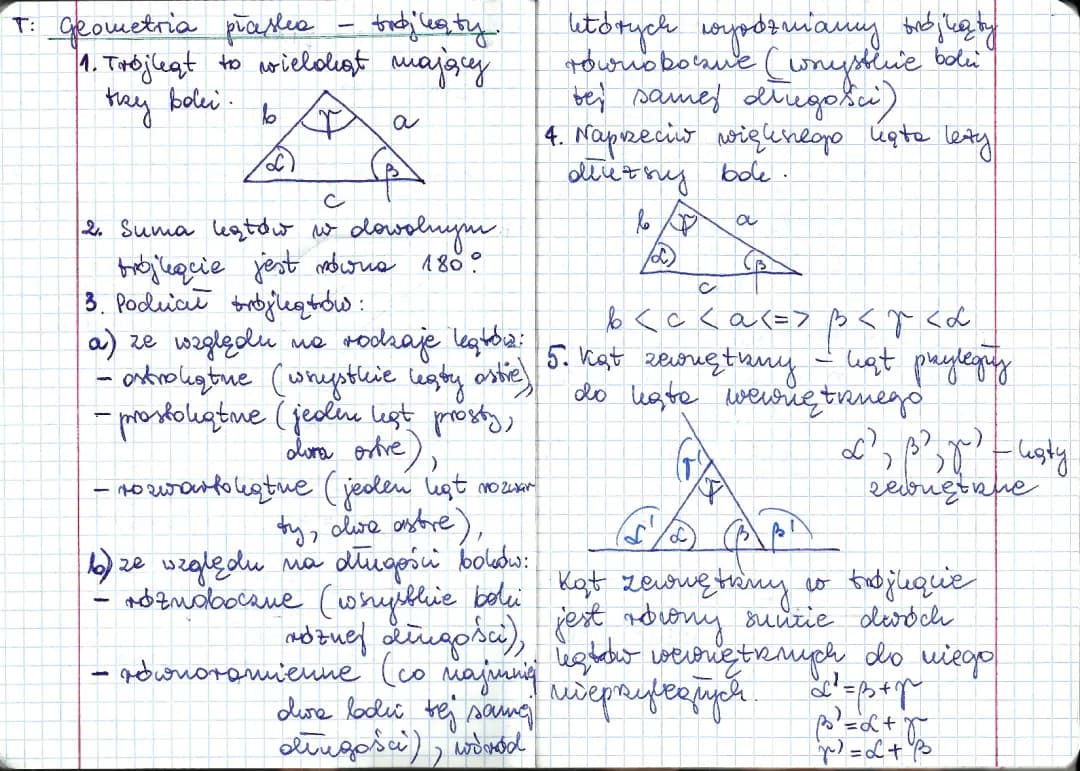 T: Geometria płaska – trójkąty.
1. Trójkąt to wielokąt mający
trzy boki.
b
γ
a
α
β
c
2. Suma kątów w dowolnym
trójkącie jest równa 180°.
3. Podział trójkątów:
a) ze względu na rodzaje kątów:
– ostrokątne (wszystkie kąty ostre),
– prostokątne (jeden kąt prosty,
dwa ostre),
– rozwartokątne (jeden kąt rozwar
ty, dwa ostre),
b) ze względu na długości boków:
– różnoboczne (wszystkie boki
różnej długości),
– równoramienne (co najmniej
dwa boki tej samej
długości), wśród
których wyodrębniamy trójkąty
równoboczne (wszystkie boki
tej samej długości)
4. Naprzeciw większego kąta leży
dłuższy bok.
b
γ
a
α
β
c
b < c < a <=> β < γ < α
5. Kąt zewnętrzny – kąt przyległy
do kąta wewnętrznego
γ'
γ
α'
α
β
β'
α', β', γ' – kąty
zewnętrzne
Kąt zewnętrzny w trójkącie
jest równy sumie dwóch
kątów wewnętrznych do niego
nieprzyległych.
α' = β + γ
β' = α + γ
γ' = α + β